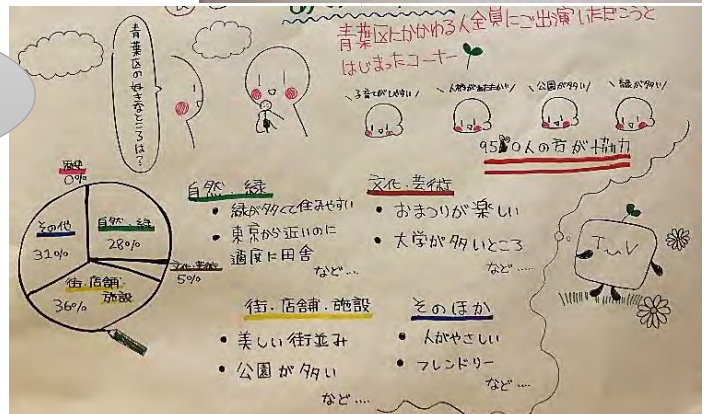 青葉区にかかわる人全員にご出演いただこうと
はじまったコーナー
青葉区の好きなところは？
子育てがしやすい
人柄があたたかい
公園が多い
緑が多い
950人の方が協力
歴史
0%
その他
31%
自然・緑
28%
文化・芸術
5%
街・店舗・
施設
36%
自然・緑
• 緑が多くて住みやすい
• 東京から近いのに
適度に田舎
など…
文化・芸術
• おまつりが楽しい
• 大学が多いところ
など….
街・店舗・施設
• 美しい街並み
• 公園が多い
など….
そのほか
• 人がやさしい
• フレンドリー
など….